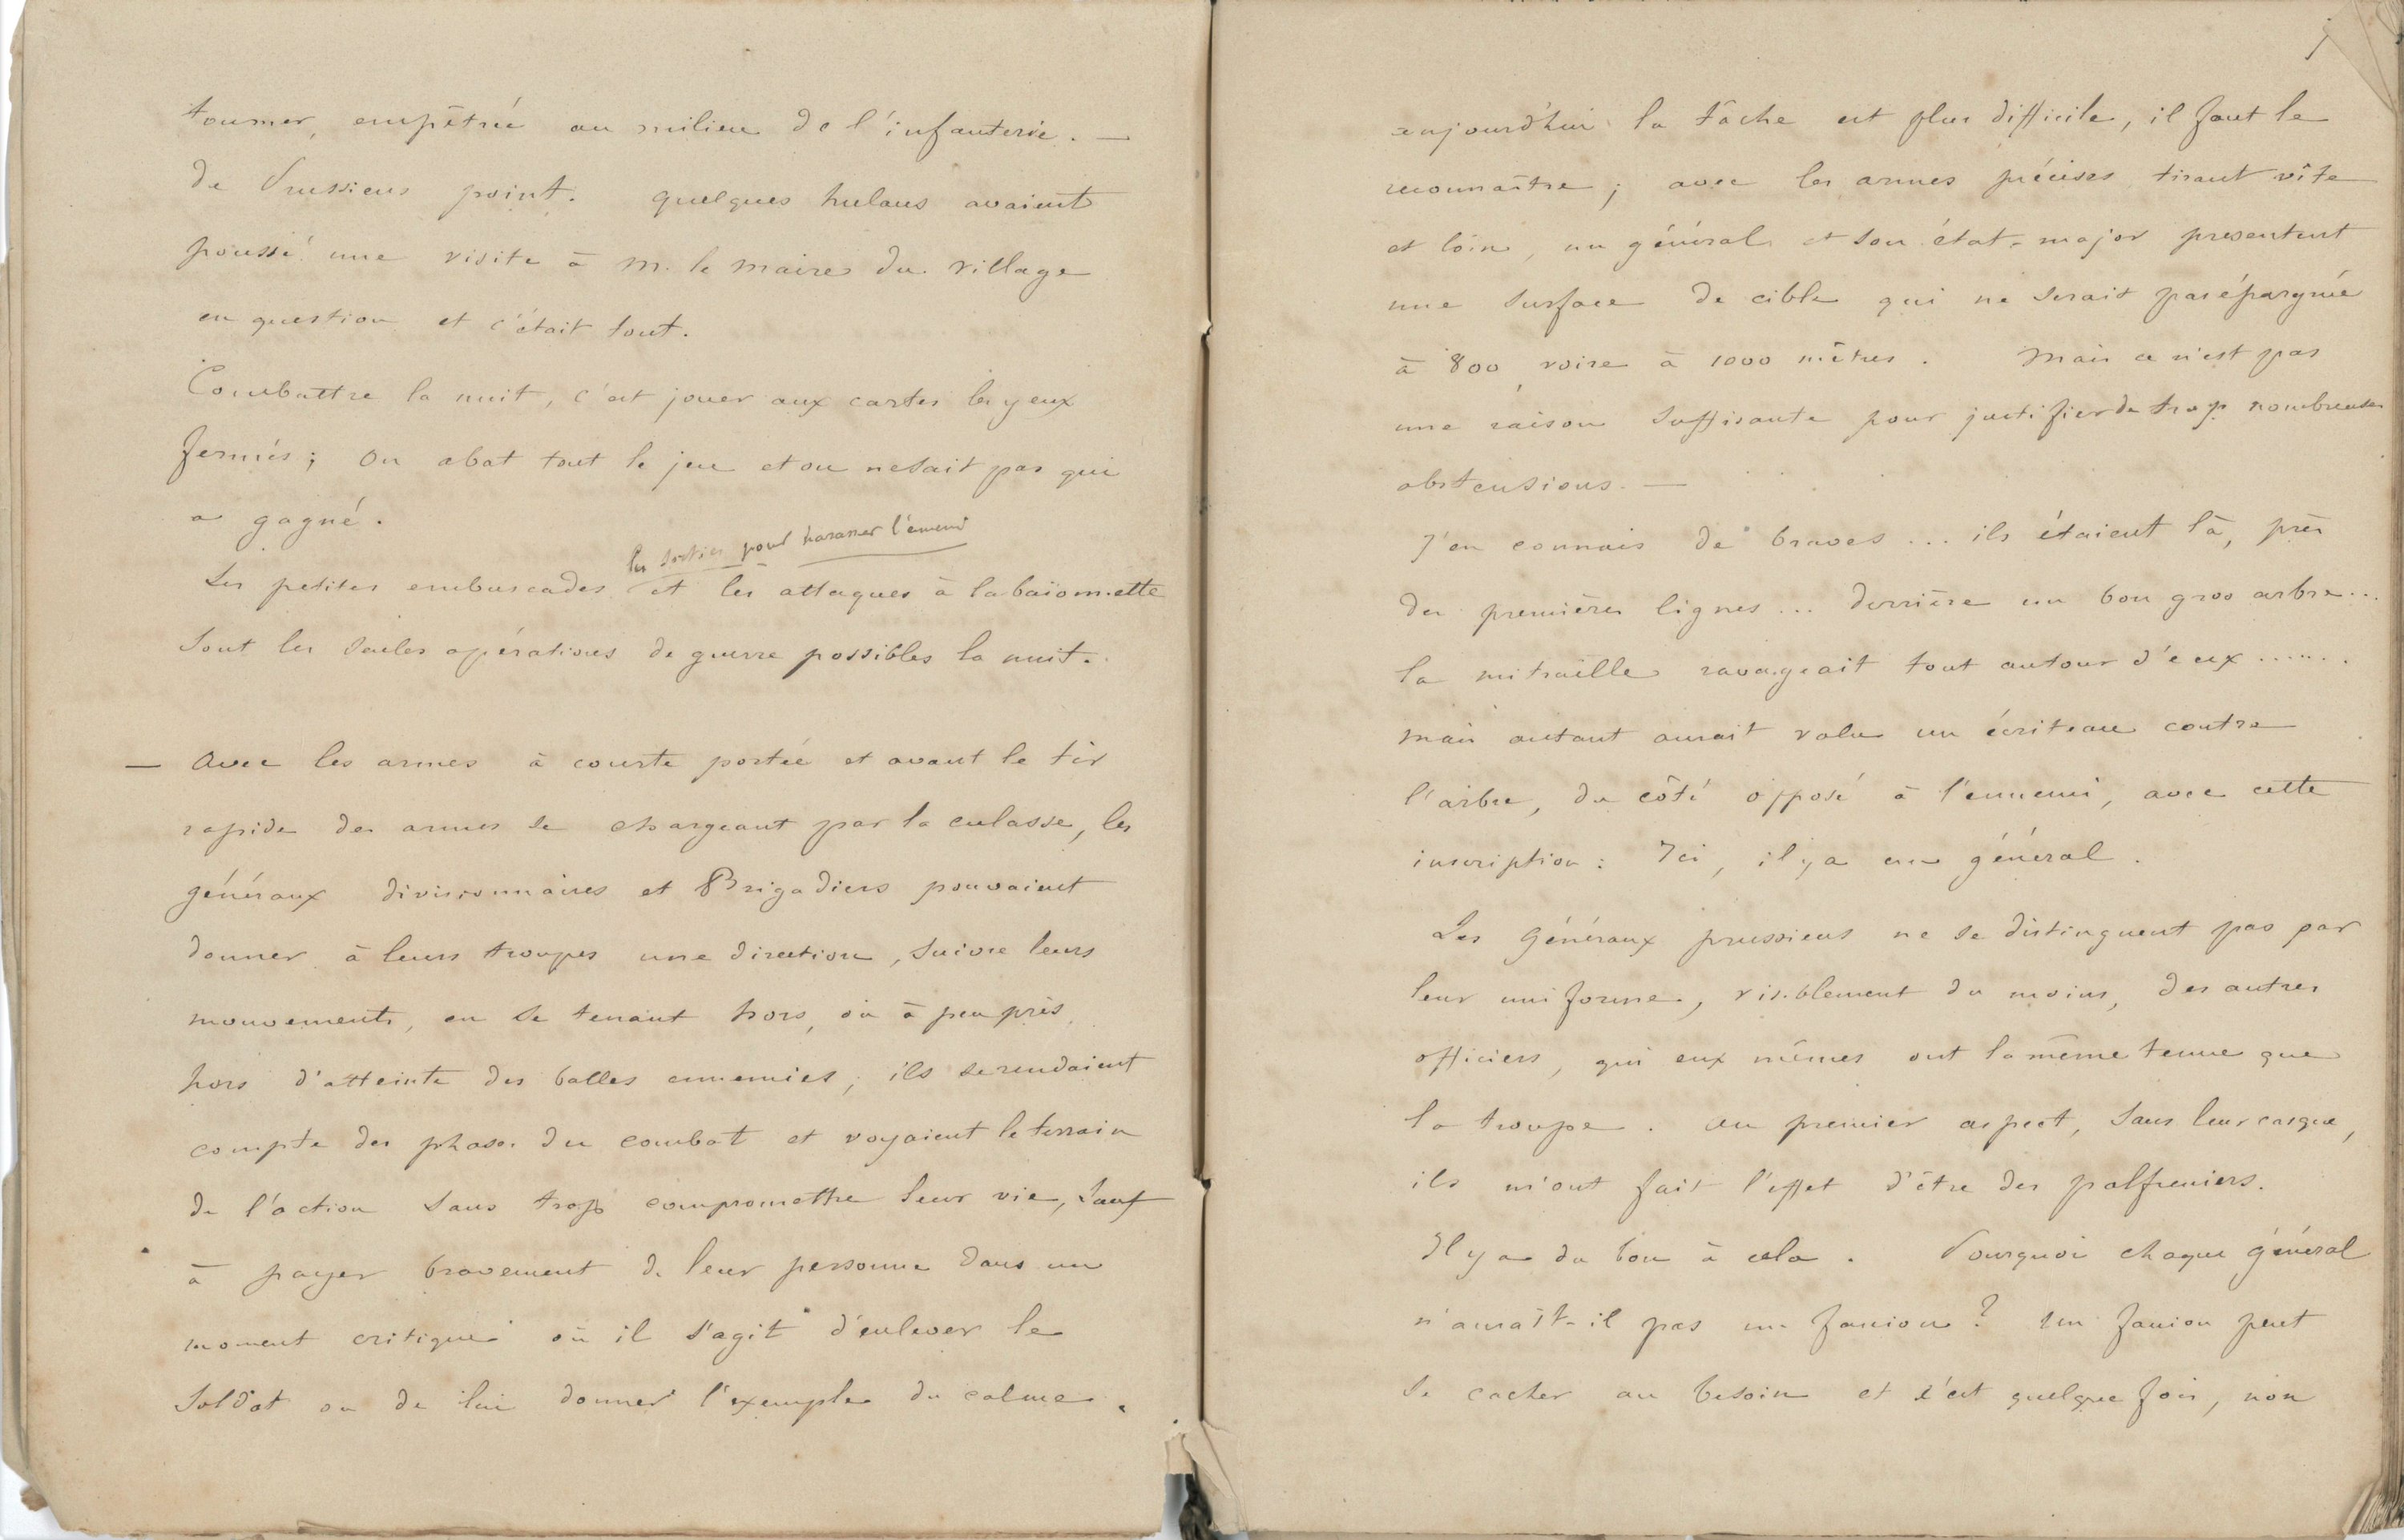 tourner, empêtrée au milieu de l'infanterie. —
de Prussiens point. quelques hulans avaient
poussé une visite à M. le Maire du village
en question et c'était tout.
Combattre la nuit, c'est jouer aux cartes les yeux
fermés; on abat tout le jeu et on ne sait pas qui
a gagné.
les sorties pour harasser l'ennemi
Les petites embuscades et les attaques à la baïonnette
sont les seules opérations de guerre possibles la nuit.
— Avec les armes à courte portée et avant le tir
rapide des armes se chargeant par la culasse, les
généraux divisionnaires et Brigadiers pouvaient
donner à leurs troupes une direction, suivre leurs
mouvements, en se tenant hors, ou à peu près
hors d'atteinte des balles ennemies; ils se rendaient
compte des phases du combat et voyaient le terrain
de l'action sans trop compromettre leur vie, sauf
à payer bravement de leur personne dans un
moment critique où il s'agit d'enlever le
soldat ou de lui donner l'exemple du calme.
aujourd'hui la tâche est plus difficile, il faut le
reconnaître; avec les armes précises tirant vite
et loin, un général et son état-major presentent
une surface de cible qui ne serait pas épargnée
à 800 voire à 1000 mètres. Mais ce n'est pas
une raison suffisante pour justifier de trop nombreuses
abstensions. —
J'en connais de braves... ils étaient là, près
des premières lignes... derrière un bon gros arbre...
la mitraille ravageait tout autour d'eux.......
mais autant aurait valu un écriteau contre
l'arbre, du côté opposé à l'ennemi, avec cette
inscription: Ici, il y a un général.
Les Généraux prussiens ne se distinguent pas par
leur uniforme, visiblement du moins, des autres
officiers, qui eux mêmes ont la même tenue que
la troupe. au premier aspect, sans leur casque,
ils m'ont fait l'effet d'être des palfreniers.
Il y a du bon à cela. Pourquoi chaque général
n'aurait-il pas un fanion? Un fanion peut
se cacher au besoin et c'est quelque fois, non